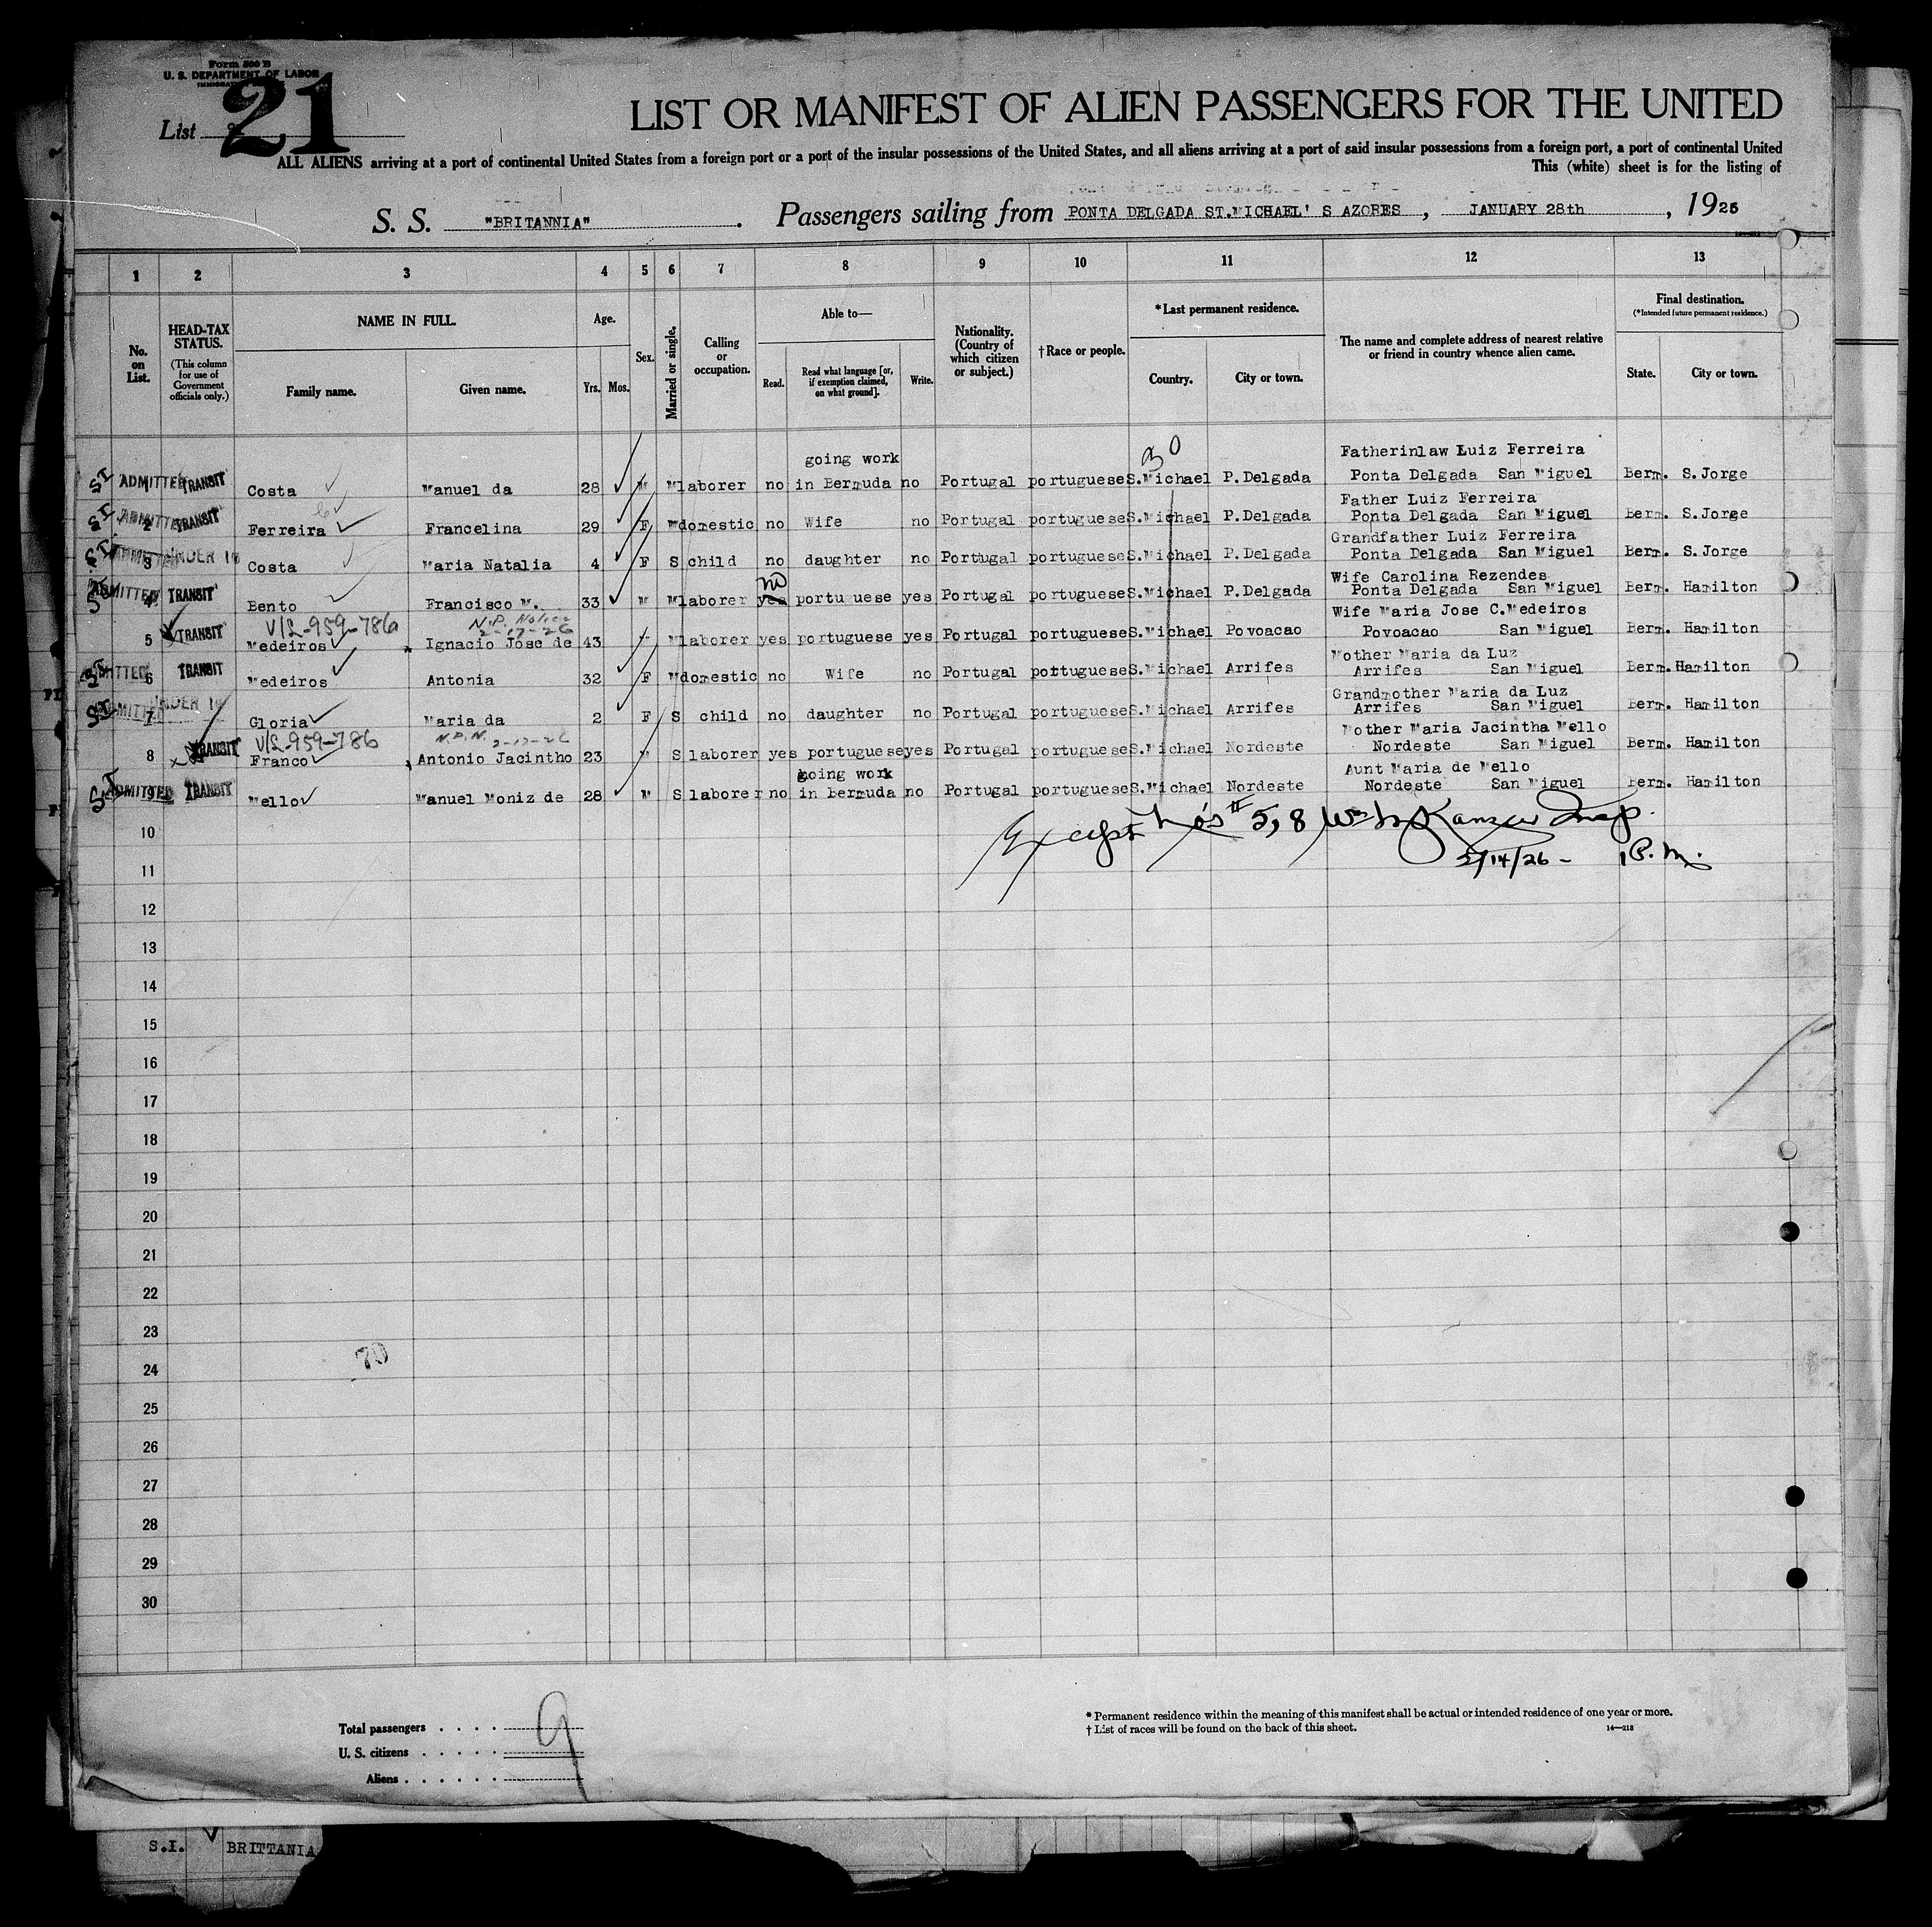 Form 500 B
U. S. DEPARTMENT OF LABOR
List 21
LIST OR MANIFEST OF ALIEN PASSENGERS FOR THE UNITED
ALL ALIENS arriving at a port of continental United States from a foreign port or a port of the insular possessions of the United States, and all aliens arriving at a port of said insular possessions from a foreign port, a port of continental United
This (white) sheet is for the listing of
S. S. "BRITANNIA". Passengers sailing from PONTA DELGADA ST.MICHAEL' S AZORES, JANUARY 28th, 1926
1 2 3 4 5 6 7 8 9 10 11 12 13
No. on List. HEAD-TAX STATUS. (This column for use of Government officials only.) NAME IN FULL. Family name. Given name. Age. Yrs. Mos. Sex. Married or single. Calling or occupation. Able to— Read. Read what language [or, if exemption claimed, on what ground]. Write. Nationality. (Country of which citizen or subject.) †Race or people. *Last permanent residence. Country. City or town. The name and complete address of nearest relative or friend in country whence alien came. Final destination. (*Intended future permanent residence.) State. City or town.
going work 30 Fatherinlaw Luiz Ferreira
SI ADMITTED 1 TRANSIT Costa Manuel da 28 M M laborer no in Bermuda no Portugal portuguese S.Michael P.Delgada Ponta Delgada San Miguel Berm. S.Jorge
Father Luiz Ferreira
SI ADMITTED 2 TRANSIT Ferreira Francelina 29 F M domestic no Wife no Portugal portuguese S.Michael P.Delgada Ponta Delgada San Miguel Berm. S.Jorge
Grandfather Luiz Ferreira
SI ADMITTED 3 UNDER 16 Costa Maria Natalia 4 F S child no daughter no Portugal portuguese S.Michael P.Delgada Ponta Delgada San Miguel Berm. S.Jorge
no Wife Carolina Rezendes
SI ADMITTED 4 TRANSIT Bento Francisco M. 33 M M laborer yes portuguese yes Portugal portuguese S.Michael P.Delgada Ponta Delgada San Miguel Berm. Hamilton
V/L-959-786 N.P. Notice 2-17-26 Wife Maria Jose C.Medeiros
5 TRANSIT Medeiros Ignacio Jose de 43 M laborer yes portuguese yes Portugal portuguese S.Michael Povoacao Povoacao San Miguel Berm. Hamilton
Mother Maria da Luz
SI ADMITTED 6 TRANSIT Medeiros Antonia 32 F M domestic no Wife no Portugal portuguese S.Michael Arrifes Arrifes San Miguel Berm. Hamilton
Grandmother Maria da Luz
SI ADMITTED 7 UNDER 16 Gloria Maria da 2 F S child no daughter no Portugal portuguese S.Michael Arrifes Arrifes San Miguel Berm. Hamilton
V/L-959-786 N.P.N. 2-17-26 Mother Maria Jacintha Mello
8 TRANSIT Franco Antonio Jacintho 23 M S laborer yes portuguese yes Portugal portuguese S.Michael Nordeste Nordeste San Miguel Berm. Hamilton
going work Aunt Maria de Mello
SI ADMITTED 9 TRANSIT Mello Manuel Moniz de 28 M S laborer no in Bermuda no Portugal portuguese S.Michael Nordeste Nordeste San Miguel Berm. Hamilton
10 Except No's 5, 8 Insp.
11 2/14/26 - 1 P. M.
12
13
14
15
16
17
18
19
20
21
22
23
24 70
25
26
27
28
29
30
Total passengers 9
U. S. citizens
Aliens
* Permanent residence within the meaning of this manifest shall be actual or intended residence of one year or more.
† List of races will be found on the back of this sheet. 14—213
S.I. BRITTANIA